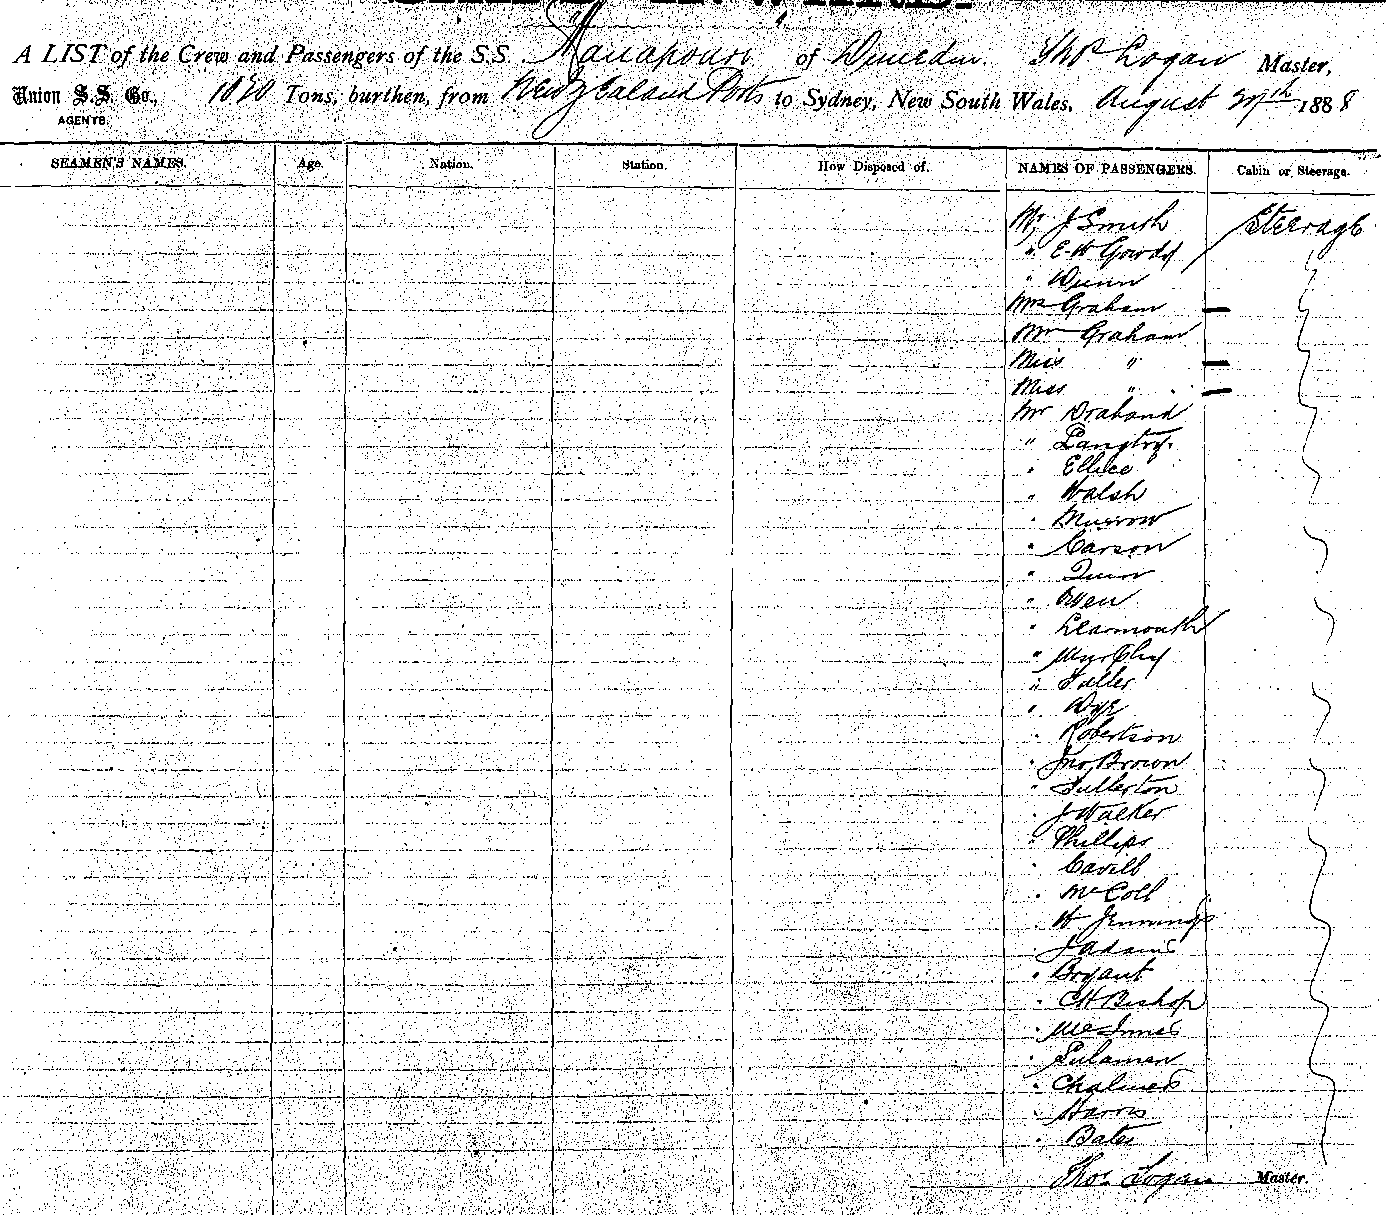 A LIST of the Crew and Passengers of the S.S. Manapouri of Dunedin. Thos Logan Master,
Union S.S. Co., Tons, burthen, from New Zealand Ports to Sydney, New South Wales, August 1888
AGENTS.
SEAMEN'S NAMES. Age. Nation. Station. How Disposed of. NAMES OF PASSENGERS. Cabin or Steerage.
Mr J Smith Steerage
" E W
" Dunn
Mrs Graham —
Mr Graham
Miss " —
Miss " —
Mr
" Langtry
" Ellice
" Walsh
" Murrow
" Carson
" Quin
" Owen
" Learmouth
" Murphy
" Fuller
" Wye
" Robertson
" Jno Brown
" Fullerton
" J Walker
" Phillips
" Cavill
" McColl
W Jennings
" J Adams
" Bryant
" C H Bishop
" McInnes
"
" Chalmers
" Harris
" Bates
Thos. Logan Master.